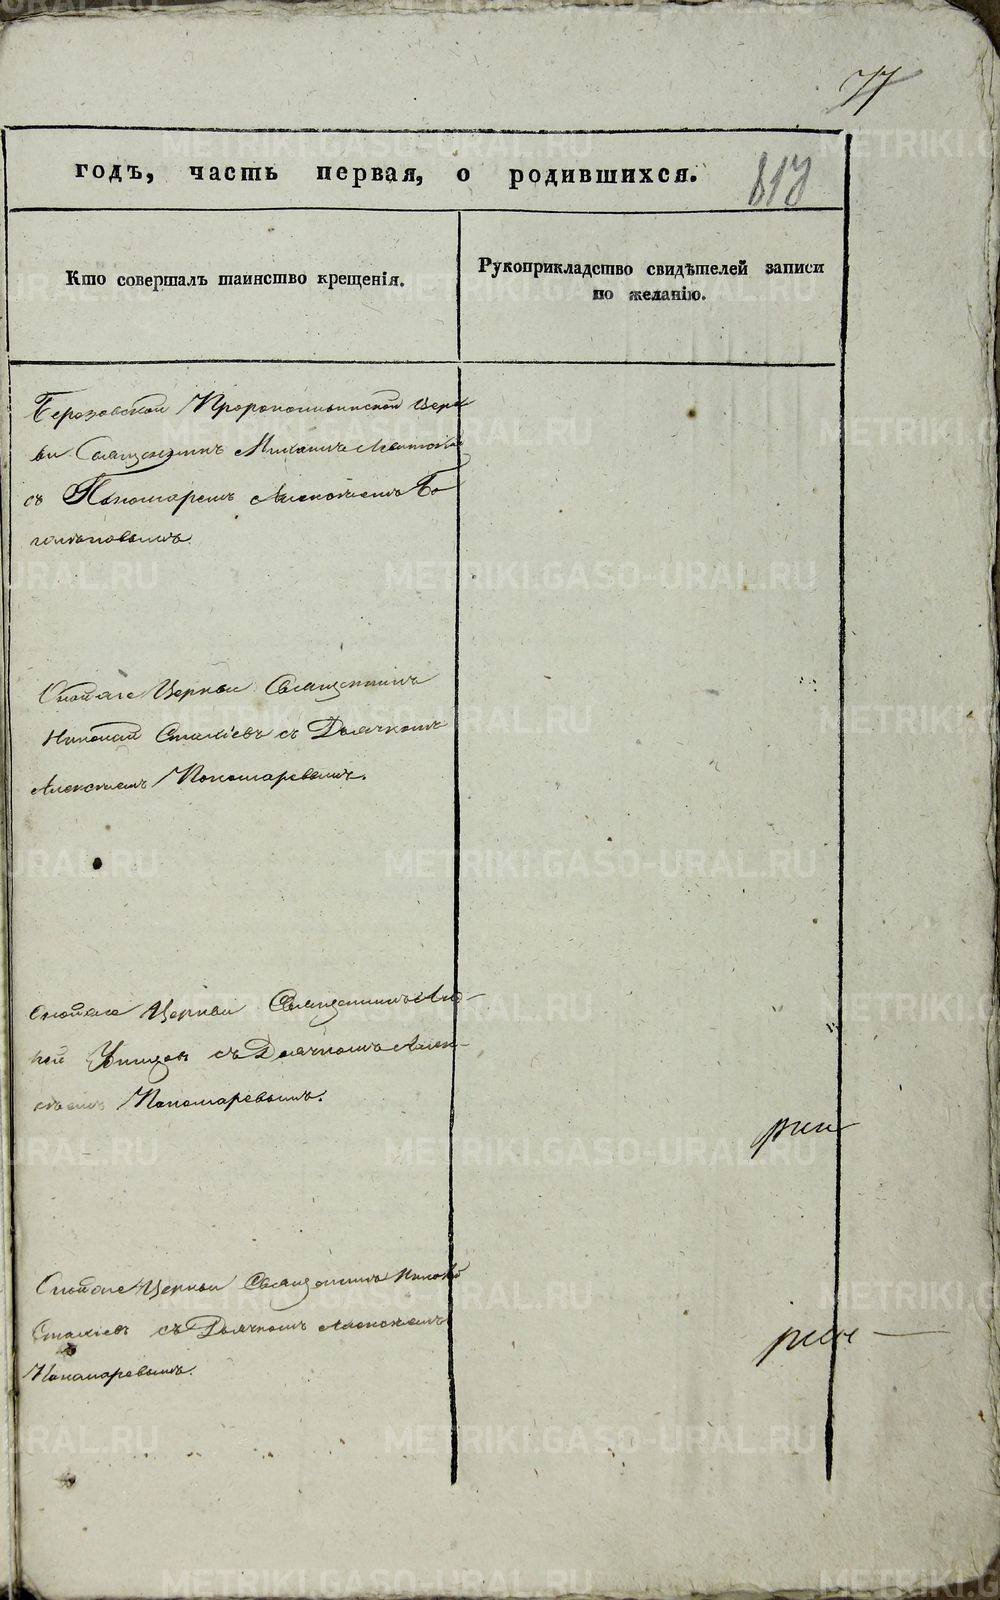 77
годъ, часть первая, о родившихся. 817
Кто совершалъ таинство крещенія.
Рукоприкладство свидѣтелей записи
по желанію.
Березовской Пророкоильинской Церк
ви Священникъ Михаилъ
съ Пономаремъ Алексѣемъ Бо
Онойже Церкви Священникъ
Николай Стахіевъ съ Дьячкомъ
Алексѣемъ Пономаревымъ.
Онойже Церкви Священникъ Анд-
рей съ Дьячкомъ Алек-
сѣемъ Пономаревымъ.
Онойже Церкви Священникъ Николай
Стахіевъ съ Дьячкомъ Алексѣемъ
Пономаревымъ.
METRIKI.GASO-URAL.RU